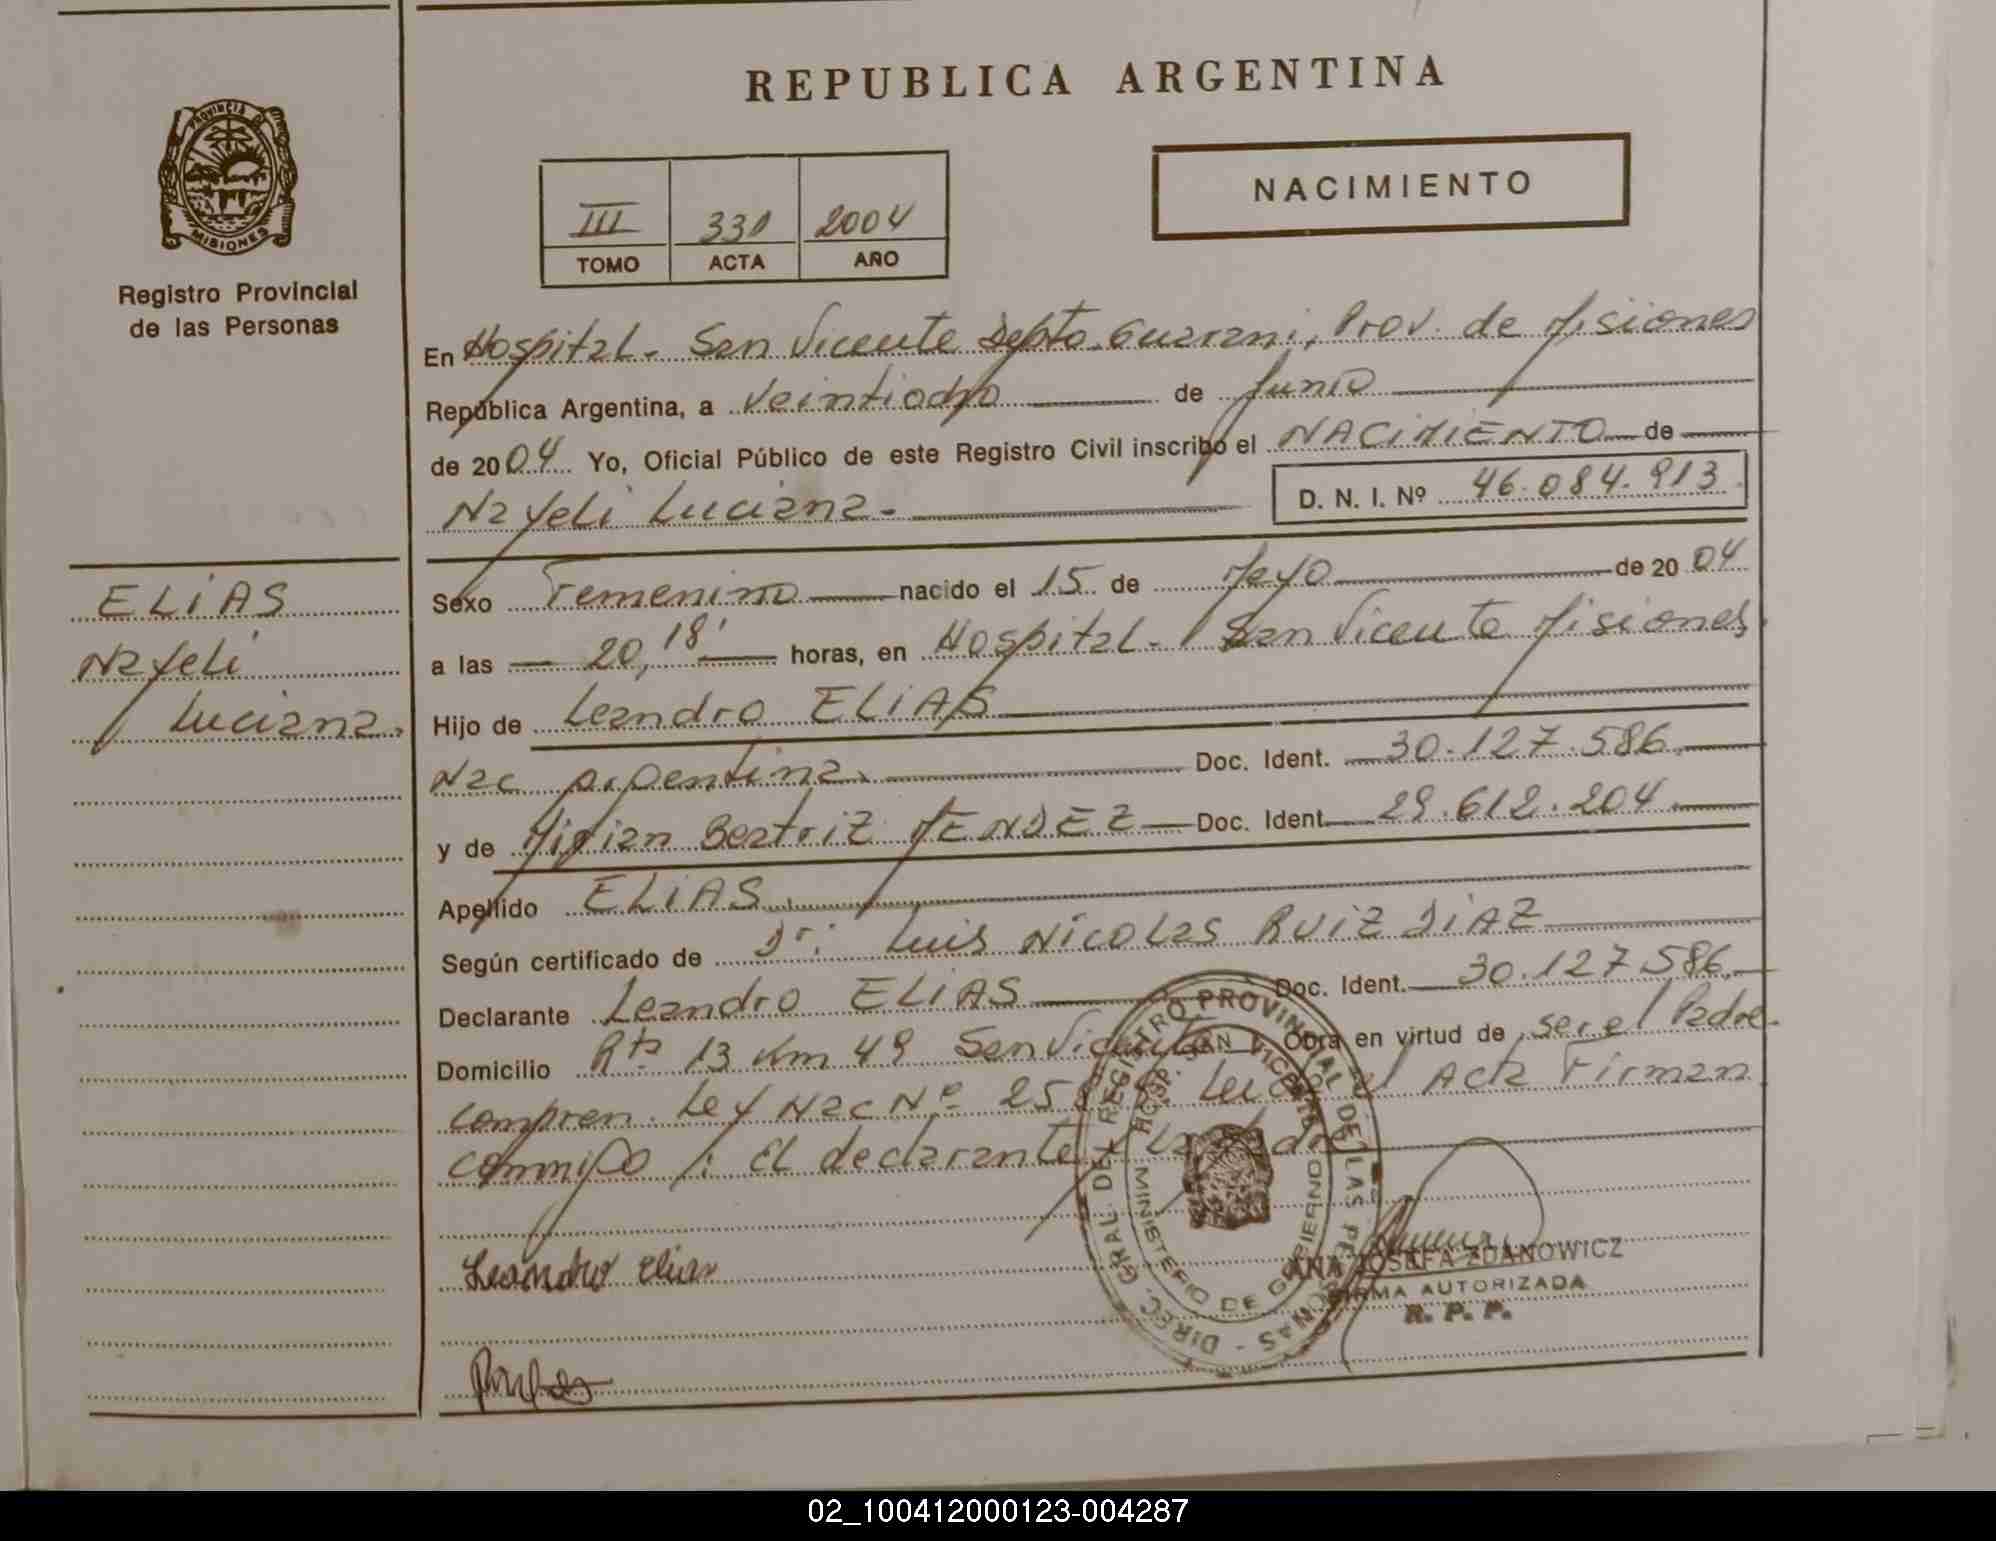 REPUBLICA ARGENTINA
NACIMIENTO
PROVINCIA DE
MISIONES
Registro Provincial
de las Personas
III 331 2004
TOMO ACTA AÑO
En Hospital - San Vicente Depto. Guarani, Prov. de Misiones
República Argentina, a Veintiocho de Junio
de 2004 Yo, Oficial Público de este Registro Civil inscribo el NACIMIENTO de
Nayeli Luciana.-
D. N. I. Nº 46.084.913
ELIAS
Nayeli
Luciana.
Sexo Femenino nacido el 15 de Mayo de 2004
a las 20,18' horas, en Hospital - San Vicente Misiones
Hijo de Leandro ELIAS
Nac Argentina. Doc. Ident. 30.127.586
y de Beatriz MENDEZ Doc. Ident. 29.612.204
Apellido ELIAS.
Según certificado de Dr: Luis Nicolas RUIZ DIAZ
Declarante Leandro ELIAS Doc. Ident. 30.127.586
Domicilio Rta 13 Km 49 San Vicente Obra en virtud de ser el Padre.
compren. Ley Nac Nº el Acta Firman
conmigo: El declarante
Leandro Elias
DIREC. GRAL. DEL REGISTRO PROVINCIAL DE LAS PERSONAS -
HOSP. SAN VICENTE
MINISTERIO DE GOBIERNO
ANA JOSEFA ZDANOWICZ
FIRMA AUTORIZADA
R. P. P.
02_100412000123-004287